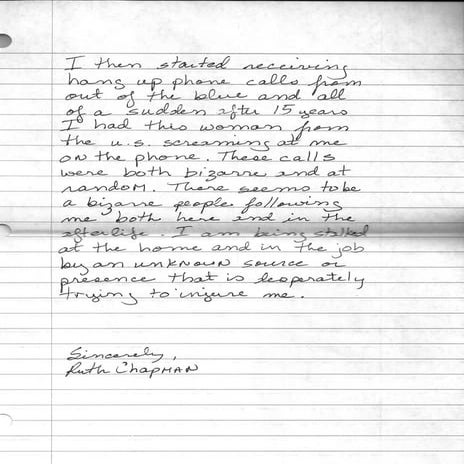 I then started receiving
hang up phone calls from
out of the blue and all
of a sudden after 15 years
I had this woman from
the u.s. screaming at me
on the phone. These calls
were both bizarre and at
random. There seems to be
a bizarre people following
me both here and in the
afterlife. I am being stalked
at the home and in the job
by an unknown source or
presence that is desperately
trying to injure me.
Sincerely,
Ruth Chapman